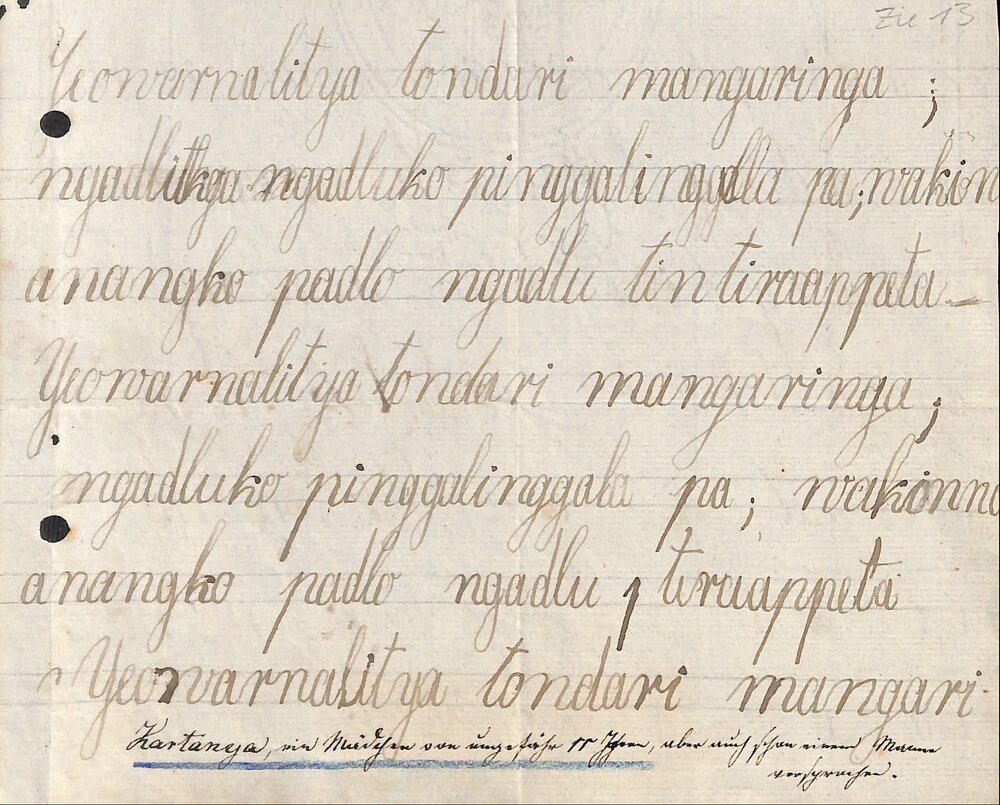 Zu 13
Yeowarnalitya tondari mangaringa ;
ngadlitkga ngadluko pinggalinggalla pa; wakin
anangko padlo ngadlu tintiraappeta –
Yeowarnalitya tondari mangaringa ;
ngadluko pinggalinggala pa ; wakinna
anangko padlo ngadlu , tiraappeta
Yeowarnalitya tondari mangari
Kartanya, ein Mädchen von ungefähr 11 Jahren, aber auch schon einem Manne
versprochen.